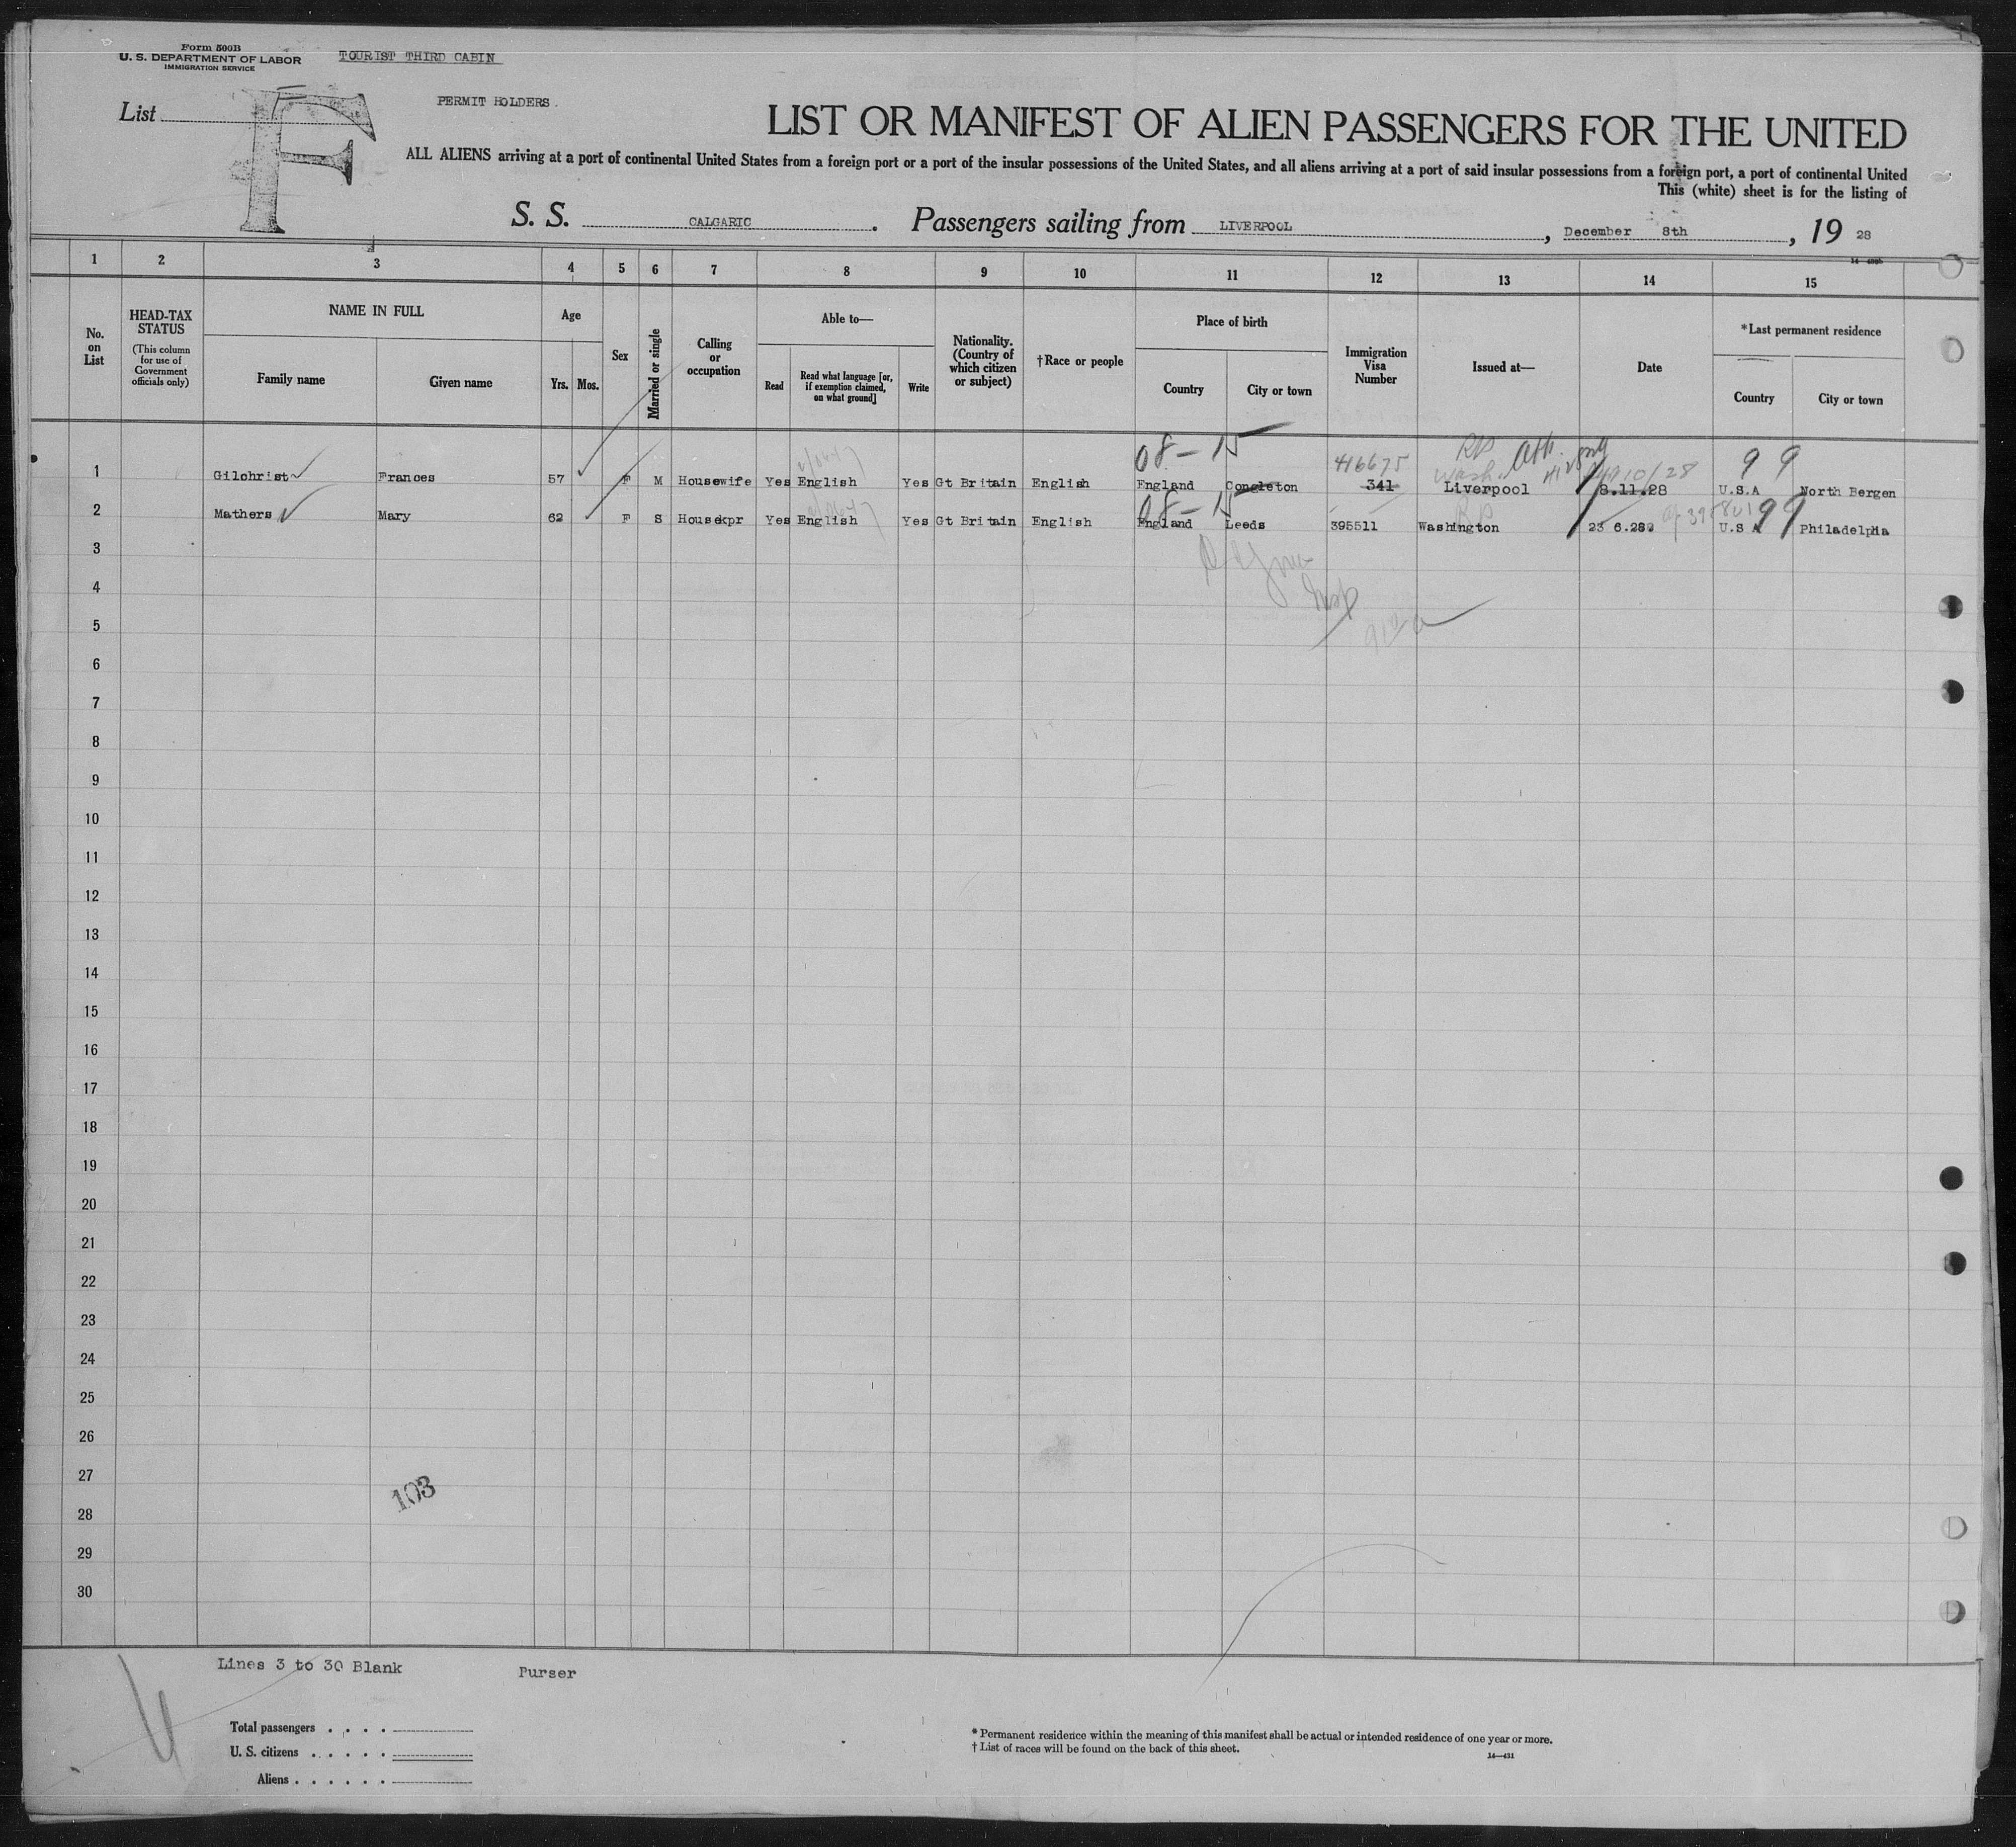 Form 500B
U. S. DEPARTMENT OF LABOR
IMMIGRATION SERVICE
TOURIST THIRD CABIN
List
F
PERMIT HOLDERS.
LIST OR MANIFEST OF ALIEN PASSENGERS FOR THE UNITED
ALL ALIENS arriving at a port of continental United States from a foreign port or a port of the insular possessions of the United States, and all aliens arriving at a port of said insular possessions from a foreign port, a port of continental United
This (white) sheet is for the listing of
S. S. CALGARIC. Passengers sailing from LIVERPOOL, December 8th, 19 28
1 2 3 4 5 6 7 8 9 10 11 12 13 14 15
No. on List
HEAD-TAX STATUS
(This column for use of Government officials only)
NAME IN FULL
Family name
Given name
Age
Yrs.
Mos.
Sex
Married or single
Calling or occupation
Able to—
Read
Read what language [or, if exemption claimed, on what ground]
Write
Nationality. (Country of which citizen or subject)
†Race or people
Place of birth
Country
City or town
Immigration Visa Number
Issued at—
Date
*Last permanent residence
Country
City or town
08 - 15 416675 RP Wash. 10/28 99
1 Gilchrist Frances 57 F M Housewife Yes English Yes Gt Britain English England Congleton 341 Liverpool 8.11.28 U.S.A North Bergen
08 - 15 RP 99
2 Mathers Mary 62 F S Housekpr Yes English Yes Gt Britain English England Leeds 395511 Washington 23 6.28 U.S A Philadelphia
3
4
Insp
5
6
7
8
9
10
11
12
13
14
15
16
17
18
19
20
21
22
23
24
25
26
27
103
28
29
30
Lines 3 to 30 Blank Purser
Total passengers . . . .
U. S. citizens . . . . .
Aliens . . . . . .
* Permanent residence within the meaning of this manifest shall be actual or intended residence of one year or more.
† List of races will be found on the back of this sheet.
14—431